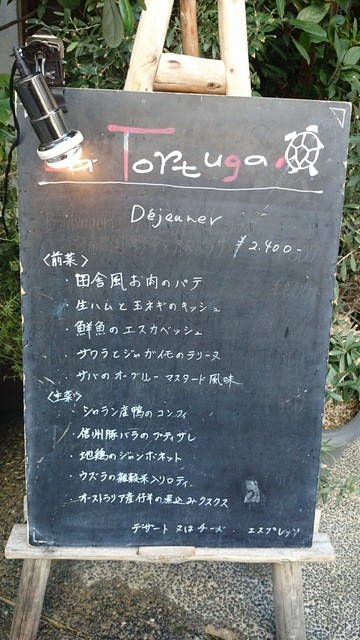 La Tortuga
Déjeuner
¥2.400-
〈前菜〉
・田舎風お肉のパテ
・生ハムと玉ネギのキッシュ
・鮮魚のエスカベッシュ
・サワラとジャガイモのテリーヌ
・サバのオーブルー マスタード風味
〈主菜〉
・シャラン産鴨のコンフィ
・信州豚バラのプティサレ
・地鶏のジャンボネット
・ウズラの雑穀米入りロティ
・オーストラリア産仔羊の煮込みクスクス
デザート 又はチーズ エスプレッソ